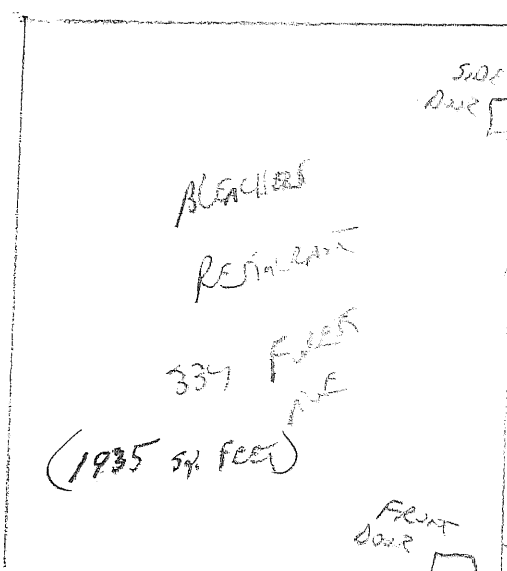 SIDE
DOOR
BLEACHERS
RESTAURANT
334 FOREST
AVE
(1935 SQ. FEET)
FRONT
DOOR